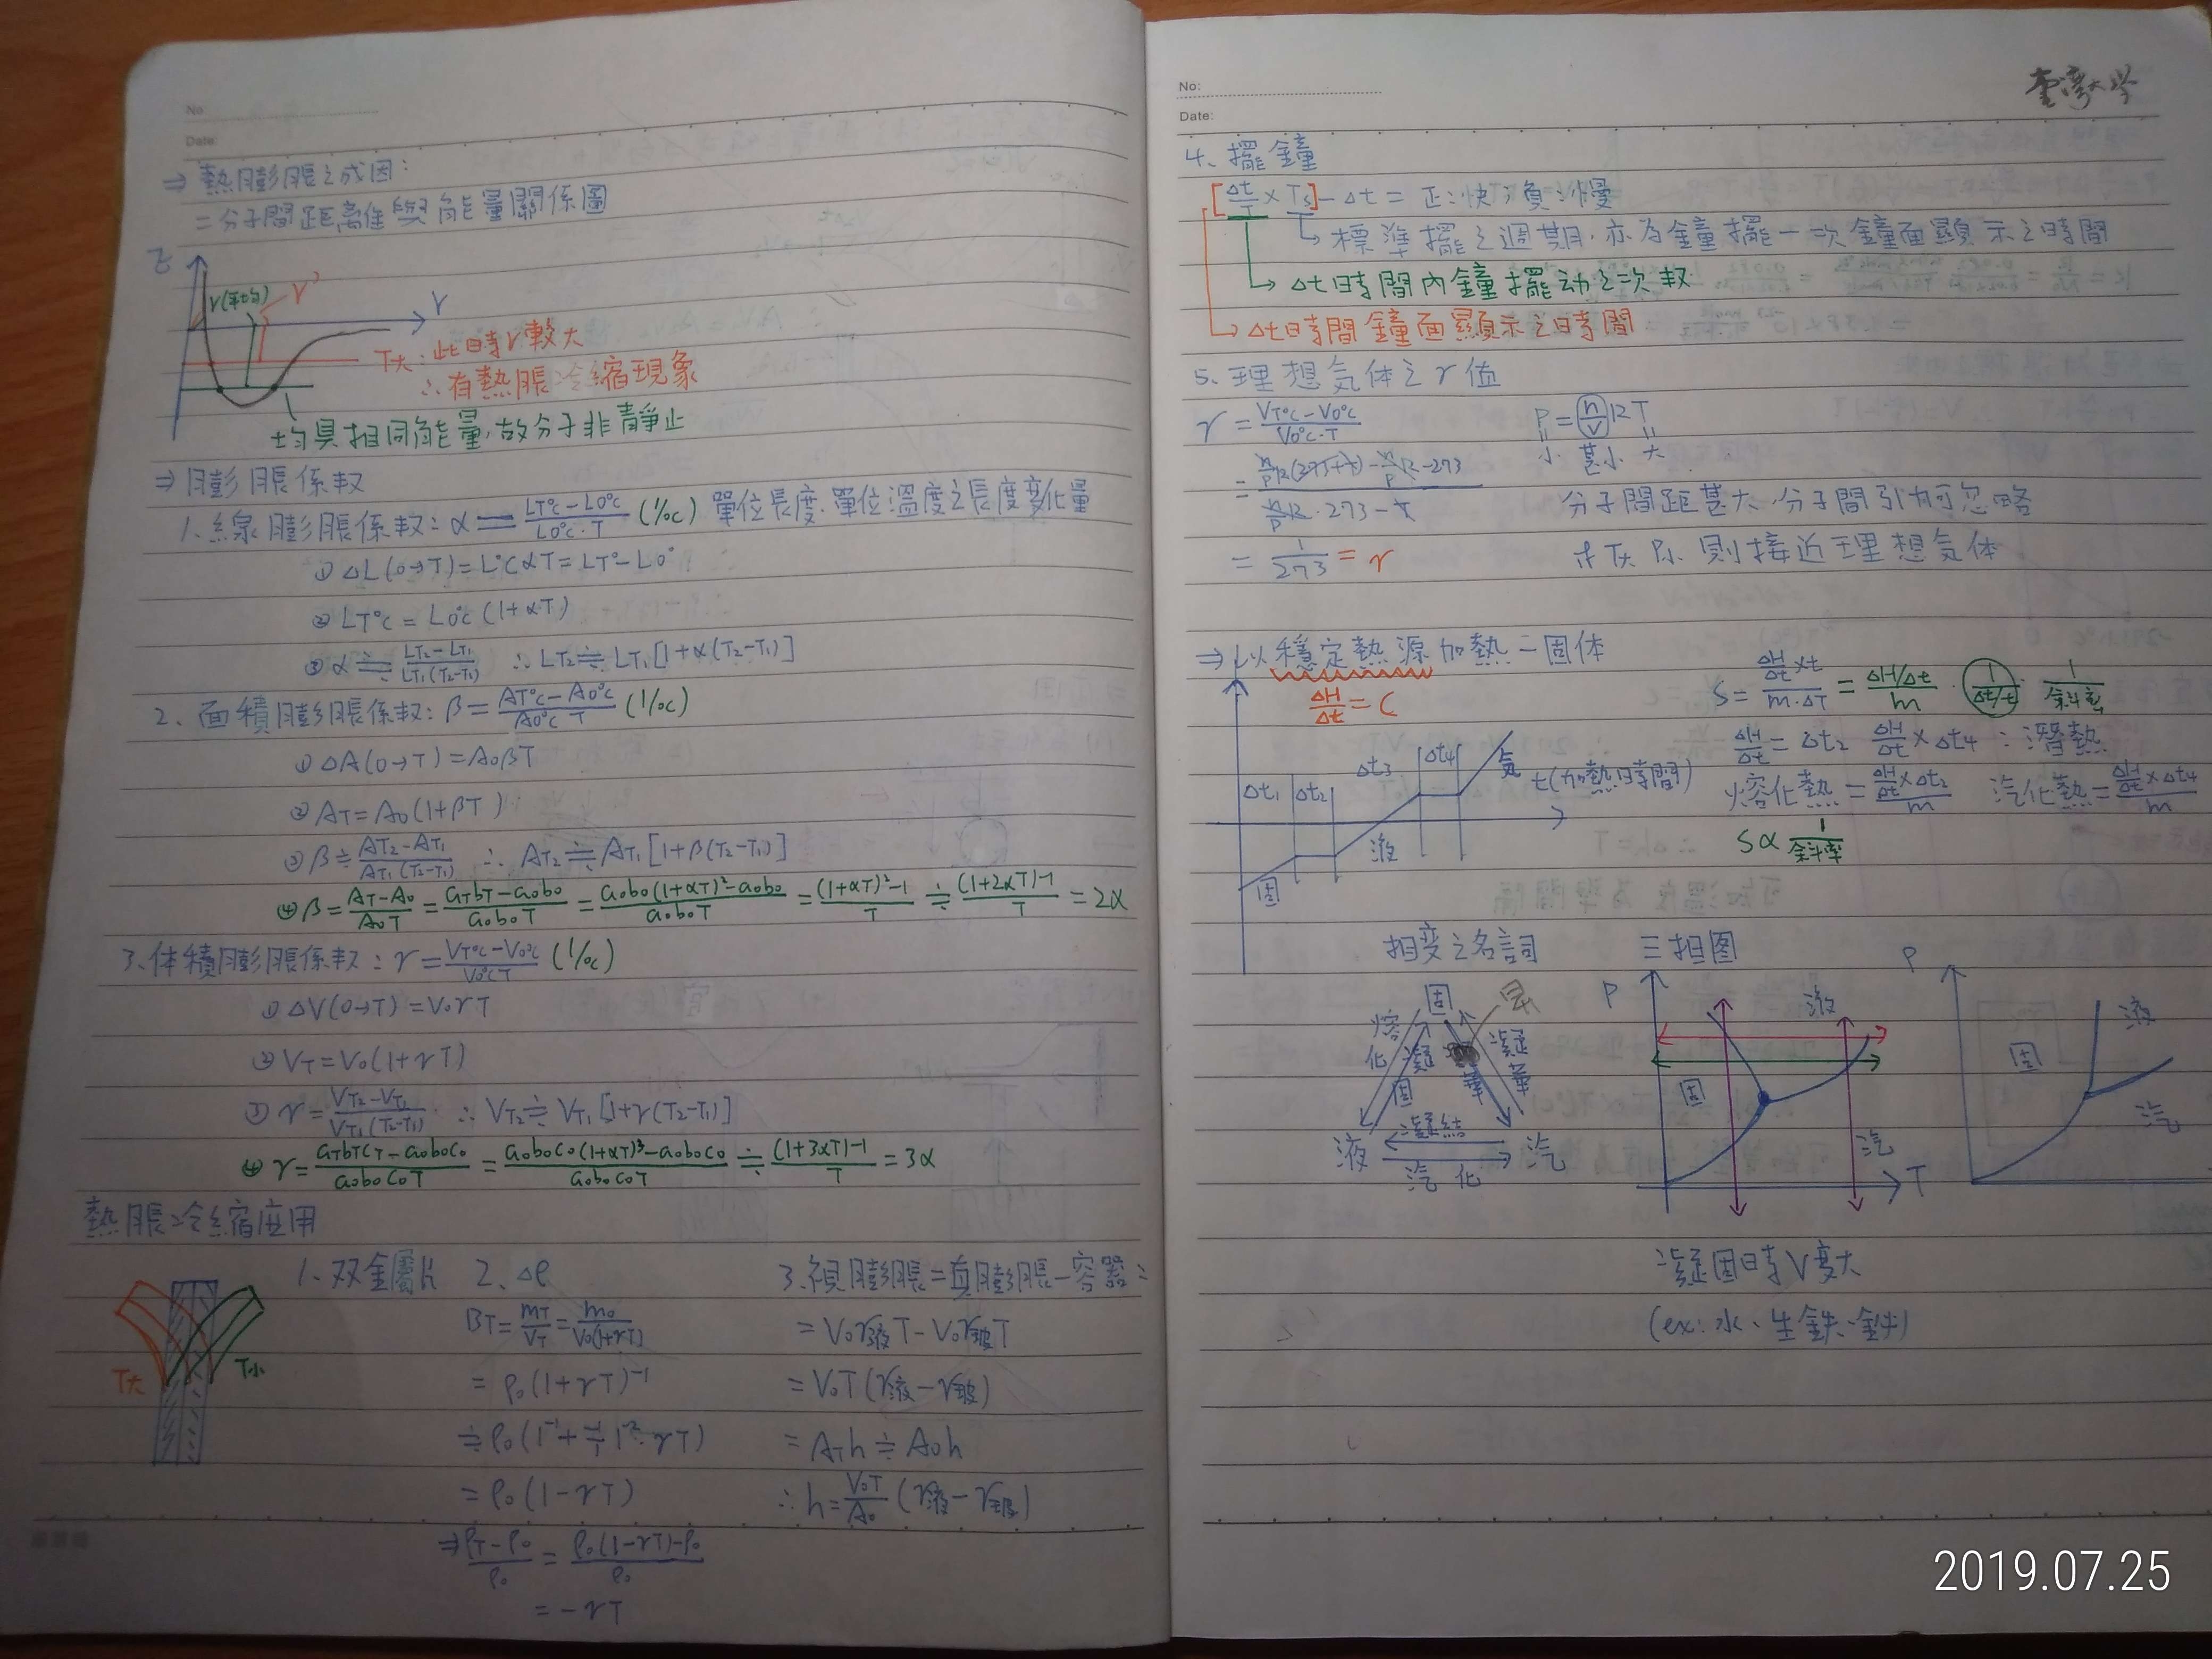 No:
Date:
⇒熱膨脹之成因:
=分子間距離與能量關係圖
E
r(平均)
r'
r
T大:此時r較大
∴有熱脹冷縮現象
均具相同能量,故分子非靜止
⇒膨脹係数
1、線膨脹係数:α=(LT°C-L0°C)/(L0°C·T) (1/°C) 單位長度、單位溫度之長度變化量
① ΔL(0→T)=L°CαT=LT°-L0°
② LT°C=L0°C(1+αT)
③ α≒(LT2-LT1)/(LT1(T2-T1)) ∴LT2≒LT1[1+α(T2-T1)]
2、面積膨脹係数:β=(AT°C-A0°C)/(A0°C T) (1/°C)
① ΔA(0→T)=A0βT
② AT=A0(1+βT)
③ β≒(AT2-AT1)/(AT1(T2-T1)) ∴AT2≒AT1[1+β(T2-T1)]
④ β=(AT-A0)/(A0T)=(aTbT-a0b0)/(a0b0T)=(a0b0(1+αT)²-a0b0)/(a0b0T)=((1+αT)²-1)/T≒((1+2αT)-1)/T=2α
3、体積膨脹係数:γ=(VT°C-V0°C)/(V0°CT) (1/°C)
① ΔV(0→T)=V0γT
② VT=V0(1+γT)
③ γ=(VT2-VT1)/(VT1(T2-T1)) ∴VT2≒VT1[1+γ(T2-T1)]
④ γ=(aTbTcT-a0b0c0)/(a0b0c0T)=(a0b0c0(1+αT)³-a0b0c0)/(a0b0c0T)≒((1+3αT)-1)/T=3α
熱脹冷縮应用
1、双金屬片
T大
T小
2、Δρ
=mT/VT=m0/(V0(1+γT))
=ρ0(1+γT)⁻¹
=ρ0(1-γT)
⇒(ρT-ρ0)/ρ0=(ρ0(1-γT)-ρ0)/ρ0
=-γT
3、視膨脹=真膨脹-容器:
=V0γ液T-V0γ玻T
=V0T(γ液-γ玻)
=ATh≒A0h
∴h=(V0T/A0)(γ液-γ玻)
No:
Date:
臺灣大學
4、擺鐘
[Δt/T×Ts]-Δt=正:快;負:慢
↳標準擺之週期,亦為鐘擺一次鐘面顯示之時間
↳Δt時間內鐘擺动之次数
↳Δt時間鐘面顯示之時間
5、理想気体之γ值
γ=(VT°C-V0°C)/(V0°C·T)
P=(n/V)RT
小 甚小 大
=(n/P R(273+t)-n/P R-273)/(n/P R·273-t)
分子間距甚大,分子間引力可忽略
=1/273=γ
T大P小則接近理想気体
⇒以穩定熱源加熱一固体
ΔH/Δt=C
S=(ΔH/Δt×t)/(m·ΔT)=(ΔH/Δt)/m·1/(Δt/t) 1/斜率
ΔH/Δt=Δt2 ΔH/Δt×Δt4:潛熱
熔化熱=(ΔH/Δt×Δt2)/m 汽化熱=(ΔH/Δt×Δt4)/m
S∝1/斜率
Δt1
Δt2
Δt3
Δt4
気
t(加熱時間)
液
固
相变之名詞
固
熔化
凝固
華
凝華
液
凝結
汽化
汽
三相图
P
固
液
汽
T
P
固
液
汽
凝固時V變大
(ex:水、生鉄、銻)
2019.07.25